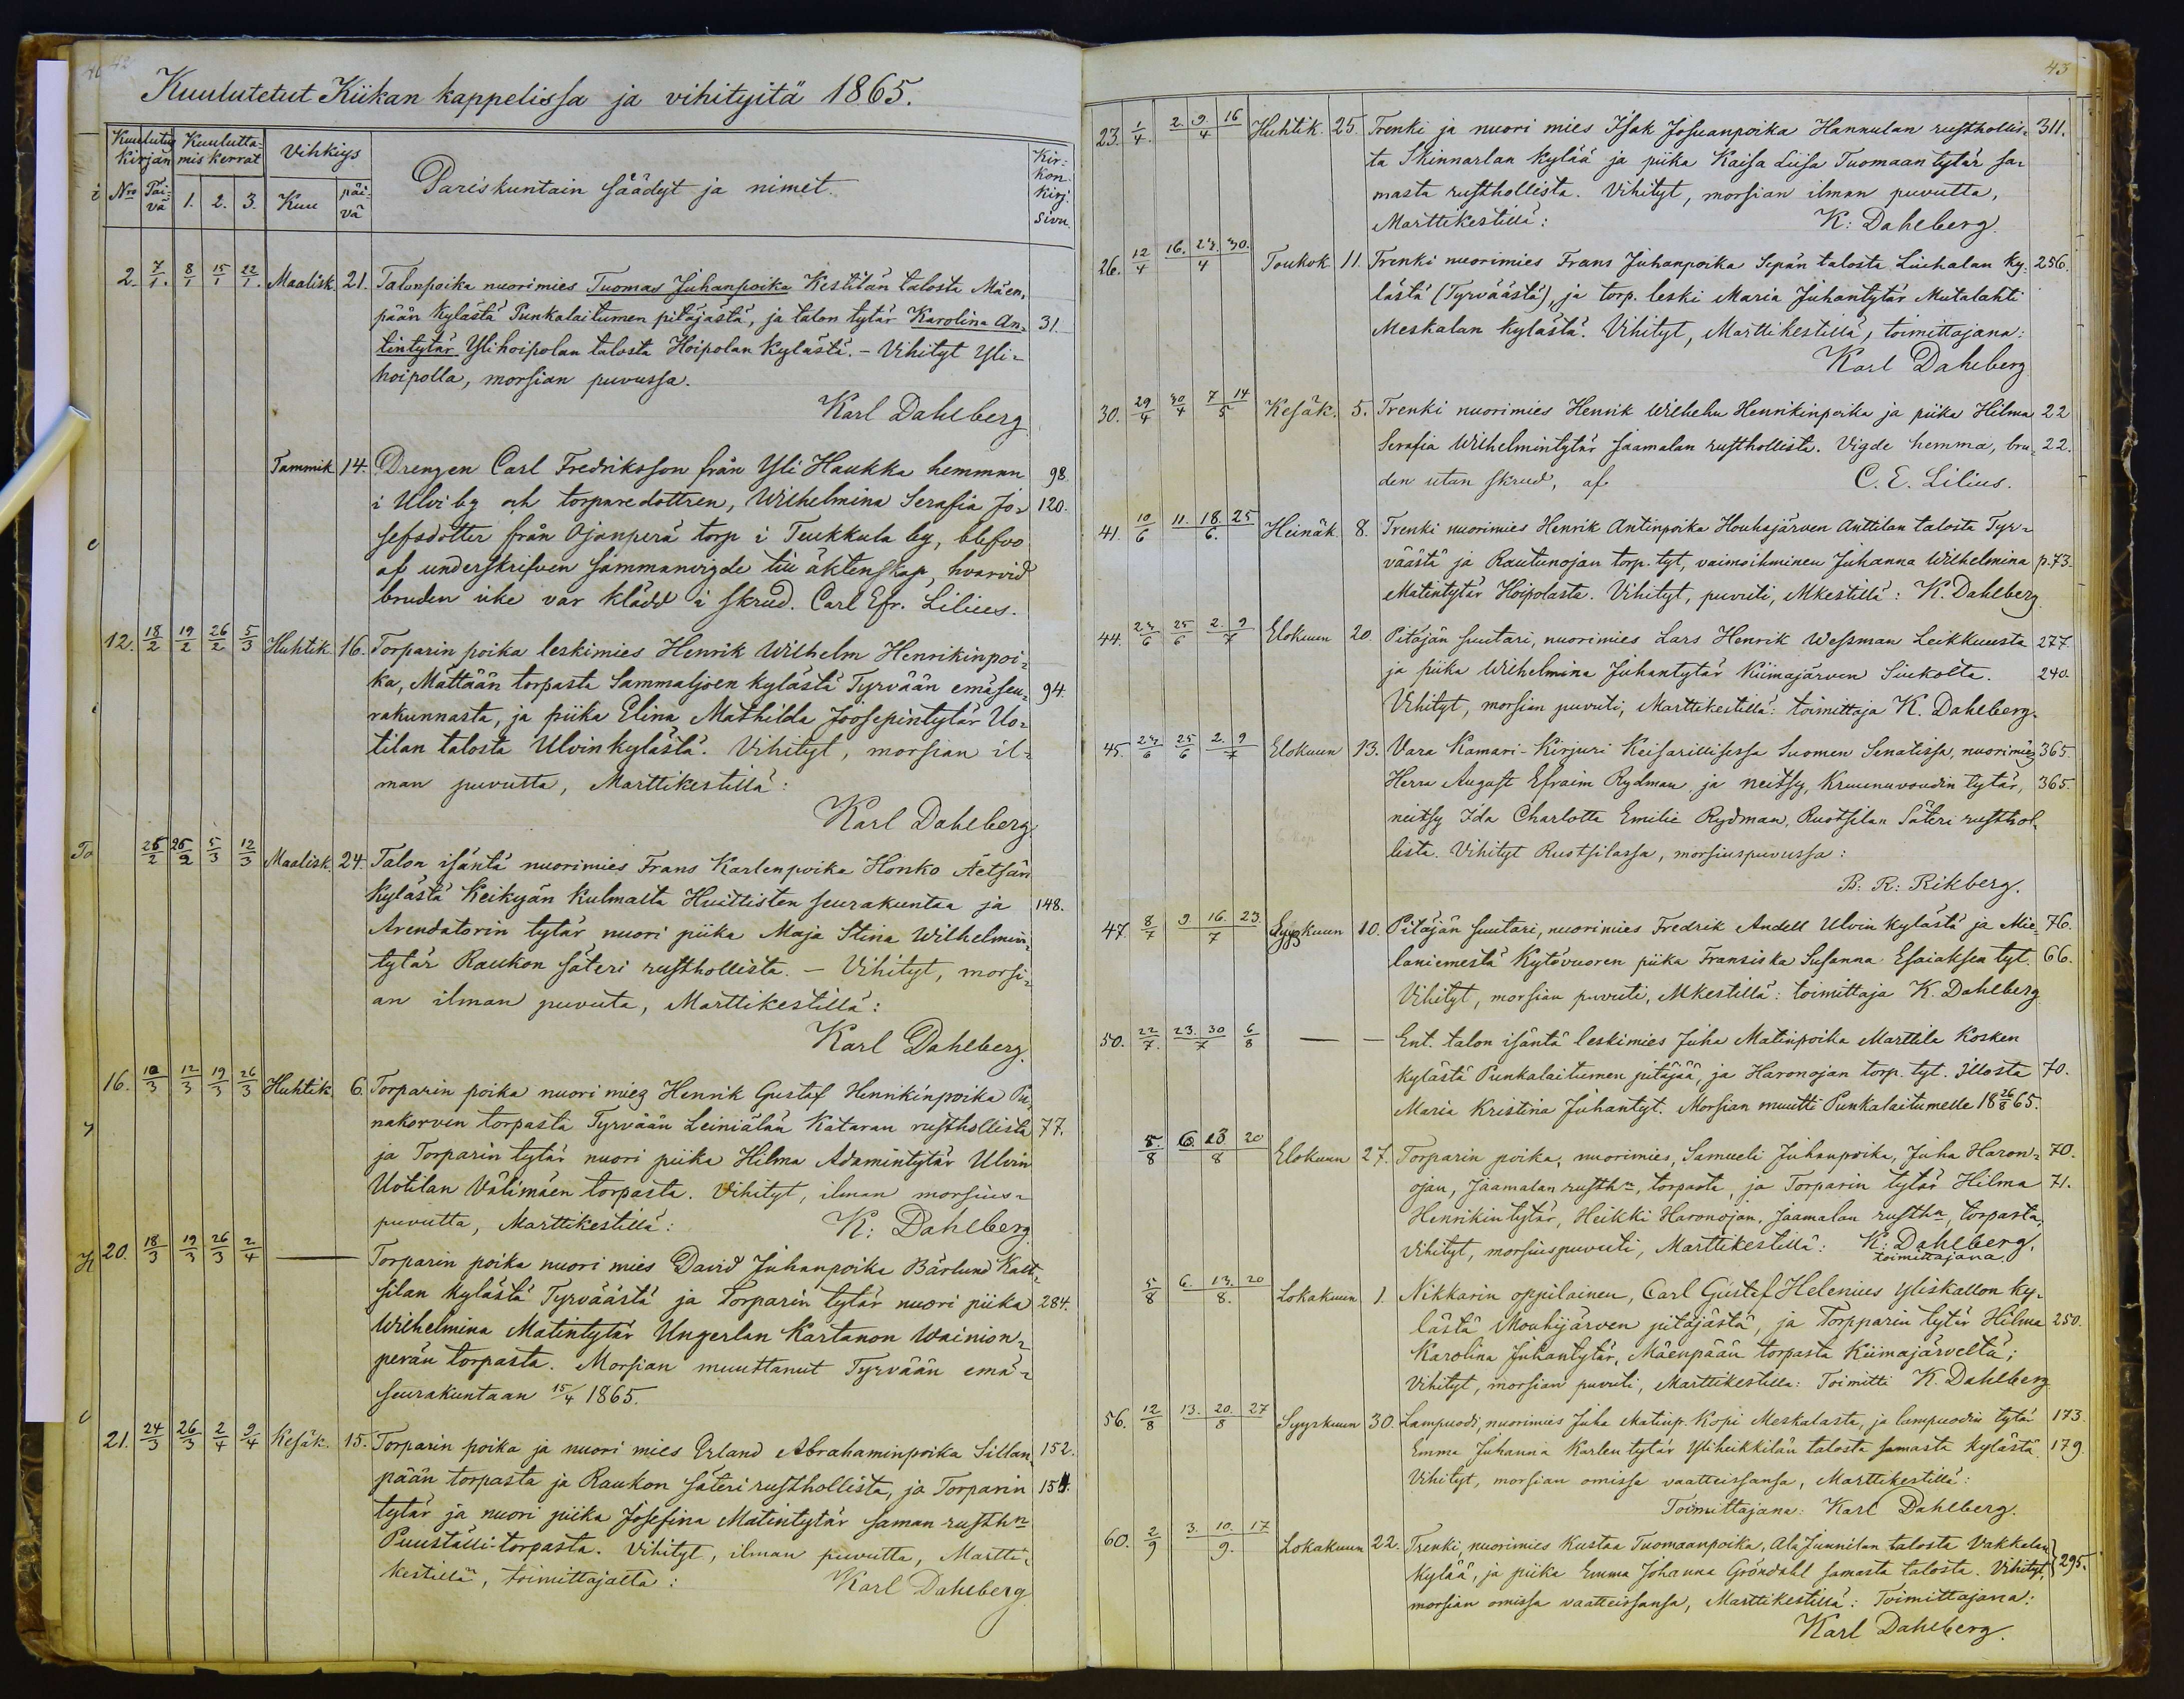 42
Kuulutetut Kiikan kappelissa ja vihityitä 1865.
Kuulutus kirjan Kuulutta- mis kerrat Vihkiys Pariskuntain säädyt ja nimet. Kir- kon- kirj. sivu.
Nro Päi- vä 1. 2. 3. Kuu päi- vä
2. 7/1. 8/1 15/1 22/1. Maalisk. 21. Talonpoika nuorimies Tuomas Juhanpoika Kestilän talosta Mäen-
pään kylästä Punkalaitumen pitäjästä, ja talon tytär Karolina An- 31
tintytär Ylihoipolan talosta Hoipolan kylästä. - Vihityt Yli-
hoipolla, morsian puvussa.
Karl Dahlberg
Tammik. 14. Drengen Carl Fredriksson från Yli Haukka hemman 98.
i Ulvi by och torparedottren, Wilhelmina Serafia Jo- 120.
sefsdotter från Ojanperä torp i Teukkula by, blefvo
af underskrifven sammanvigde till äktenskap, hvarvid
bruden icke var klädd i skrud. Carl Efr. Lilius.
12. 18/2 19/2 26/2 5/3 Huhtik. 16. Torparin poika leskimies Henrik Wilhelm Henrikinpoi-
ka, Mättään torpasta Sammaljoen kylästä Tyrvään emäseu- 94.
rakunnasta, ja piika Elina Mathilda Joosepintytär Uo-
tilan talosta Ulvin kylästä. Vihityt, morsian il-
man puvutta, Marttikestillä:
Karl Dahlberg
To 25/2 26/2 5/3 12/3 Maalisk. 24. Talon isäntä nuorimies Frans Karlenpoika Honko Äetsän
kylästä Keikyän kulmalta Huittisten seurakuntaa ja 148.
Arendatorin tytär nuori piika Maja Stina Wilhelmin-
tytär Raukon säteri rusthollista. - Vihityt, morsi-
an ilman puvuta, Marttikestillä:
Karl Dahlberg.
16. 10/3 12/3 19/3 26/3 Huhtik. 6. Torparin poika nuori mies Henrik Gustaf Henrikinpoika Pu-
nakorven torpasta Tyrvään Leiniälän Kataran rusthollista 77.
ja Torparin tytär nuori piika Hilma Adamintytär Ulvin
Uotilan Välimäen torpasta. Vihityt, ilman morsius-
puvutta, Marttikestillä: K: Dahlberg
20. 18/3 19/3 26/3 2/4 — Torparin poika nuori mies David Juhanpoika Bärlund Kalt-
silan kylästä Tyrväästä ja Torparin tytär nuori piika 284.
Wilhelmina Matintytär Ungerlan Kartanon Wainion-
perän torpasta. Morsian muuttanut Tyrvään emä-
seurakuntaan 15/4 1865.
21. 24/3 26/3 2/4 9/4 Kesäk. 15. Torparin poika ja nuori mies Erland Abrahaminpoika Sillan- 152.
pään torpasta ja Raukon säteri rusthollista, ja Torparin 154.
tytär ja nuori piika Josefina Matintytär saman rusthn
Puuställi-torpasta. Vihityt, ilman puvutta, Martti-
kestillä, toimittajalta: Karl Dahlberg
43
23. 1/4. 2. 9. 16/4 Huhtik. 25. Trenki ja nuori mies Isak Josuanpoika Hannulan rusthollis- 311.
ta Skinnarlan kylää ja piika Kaisa Liisa Tuomaan tytär sa-
masta rusthollista. Vihityt, morsian ilman puvutta,
Marttikestillä: K: Dahlberg.
26. 12/4 16. 23. 30./4 Toukok. 11. Trenki nuorimies Frans Juhanpoika Sepän talosta Liuhalan ky- 256.
lästä (Tyrväästä), ja torp. leski Maria Juhantytär Mutalahti
Meskalan kylästä. Vihityt, Marttikestillä, toimittajana:
Karl Dahlberg
30. 29/4 30/4 7 14/5 Kesäk. 5. Trenki nuorimies Henrik Wilhelm Henrikinpoika ja piika Hilma 22
Serafia Wilhelmintytär Jaamalan rusthollista. Vigde hemma, bru- 22.
den utan skrud, af C. E. Lilius.
41. 10/6 11. 18. 25/6. Heinäk. 8. Trenki nuorimies Henrik Antinpoika Houhajärven Anttilan talosta Tyr-
väästä ja Rautunojan torp. tyt, vaimoihminen Juhanna Wilhelmina p.73.
Matintytär Hoipolasta. Vihityt, puvuti, Mkestillä: K. Dahlberg
44. 24/6 25/6 2. 9/7 Elokuun 20. Pitäjän suutari, nuorimies Lars Henrik Wessman Leikkuusta 277.
ja piika Wilhelmina Juhantytär Kiimajärven Siukolta. 240.
Vihityt, morsian puvuti, Marttikestillä: toimittaja K. Dahlberg.
45. 24/6 25/6 2. 9/7 Elokuun 13. Vara Kamari-Kirjuri Keisarillisessa Suomen Senatissa, nuorimies 365.
Herra August Efraim Rydman, ja neitsy, Kruunuvoudin tytär, 365.
neitsy Ida Charlotta Emilie Rydman, Ruotsilan Säteri rusthol-
lista. Vihityt Ruotsilassa, morsiuspuvussa:
B: R: Rikberg.
47. 8/7 9. 16. 23/7 Syyskuun 10. Pitäjän suutari, nuorimies Fredrik Andell Ulvin kylästä ja Mie- 76.
laniemestä Kytövuoren piika Fransiska Susanna Esaiaksen tyt. 66.
Vihityt, morsian puvuti, Mkestillä: toimittaja K. Dahlberg
50. 22/7. 23. 30/7 6/8 — — Ent. talon isäntä leskimies Juha Matinpoika Marttila Kosken
kylästä Punkalaitumen pitäjää, ja Haronojan torp. tyt. Illosta 70.
Maria Kristina Juhantyt. Morsian muutti Punkalaitumelle 18 26/8 65.
5/8 6. 13 20/8 Elokuun 27. Torparin poika, nuorimies, Samueli Juhanpoika, Juha Haron- 70.
ojan, Jaamalan rusthn, torpasta, ja Torparin tytär Hilma 71.
Henrikin tytär, Heikki Haronojan, Jaamalan rusthn, torpasta,
Vihityt, morsiuspuvuti, Marttikestillä: K: Dahlberg.
toimittajana
5/8 6. 13. 20/8. Lokakuun 1. Nikkarin oppilainen, Carl Gustef Helenius Yliskallon ky-
lästä Mouhijärven pitäjästä, ja Torpparin tytär Hilma 250.
Karolina Juhantytär, Mäenpään torpasta Kiimajärveltä;
Vihityt, morsian puvuti, Marttikestillä: Toimitti K. Dahlberg
56. 12/8 13. 20. 27/8 Syyskuun 30. Lampuodi, nuorimies Juha Matinp. Kopi Meskalasta, ja lampuodin tytär 173.
Emma Juhanna Karlen tytär Yliheikkilän talosta samasta kylästä 179.
Vihityt, morsian omissa vaatteissansa, Marttikestillä:
Toimittajana: Karl Dahlberg.
60. 2/9 3. 10. 17/9. Lokakuun 22. Trenki, nuorimies Kustaa Tuomaanpoika, Ala Junnilan talosta Vakkalan
kylää, ja piika Emma Johanna Gröndahl samasta talosta. Vihityt, 295.
morsian omissa vaatteissansa, Marttikestillä: Toimittajana:
Karl Dahlberg.